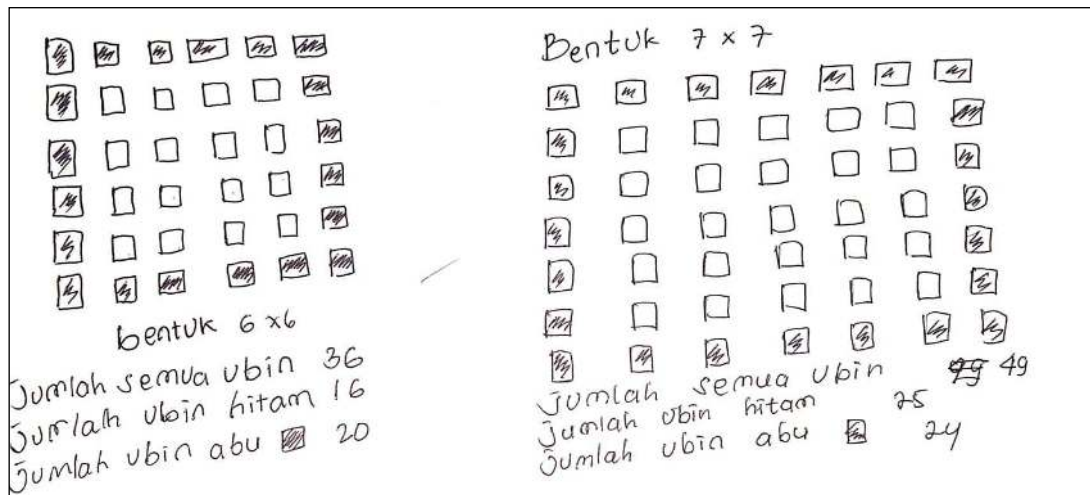 bentuk 6 x 6
Jumlah semua ubin 36
Jumlah ubin hitam 16
Jumlah ubin abu 20
Bentuk 7 x 7
Jumlah semua ubin 49
Jumlah ubin hitam 25
Jumlah ubin abu 24